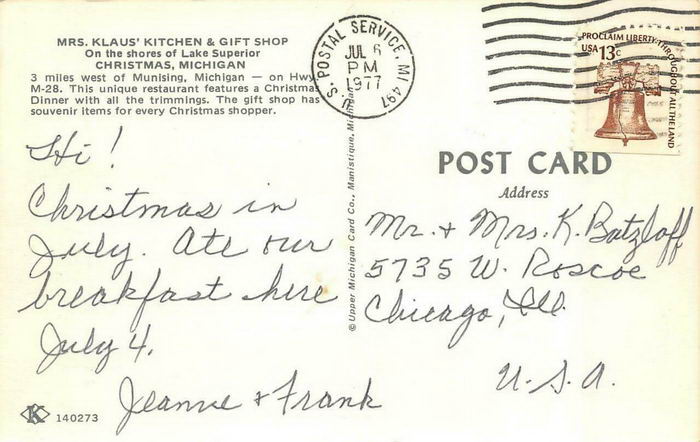 MRS. KLAUS' KITCHEN & GIFT SHOP
On the shores of Lake Superior
CHRISTMAS, MICHIGAN
3 miles west of Munising, Michigan — on Hwy
M-28. This unique restaurant features a Christmas
Dinner with all the trimmings. The gift shop has
souvenir items for every Christmas shopper.
Hi!
Christmas in
July. Ate our
breakfast here
July 4.
Jeanne & Frank
K 140273
© Upper Michigan Card Co., Manistique, Michigan
U.S. POSTAL SERVICE, MI 497
JUL 6
PM
1977
PROCLAIM LIBERTY THROUGHOUT ALL THE LAND
USA 13c
POST CARD
Address
Mr. & Mrs. K. Batzloff
5735 W. Roscoe
Chicago, Ill.
U.S.A.